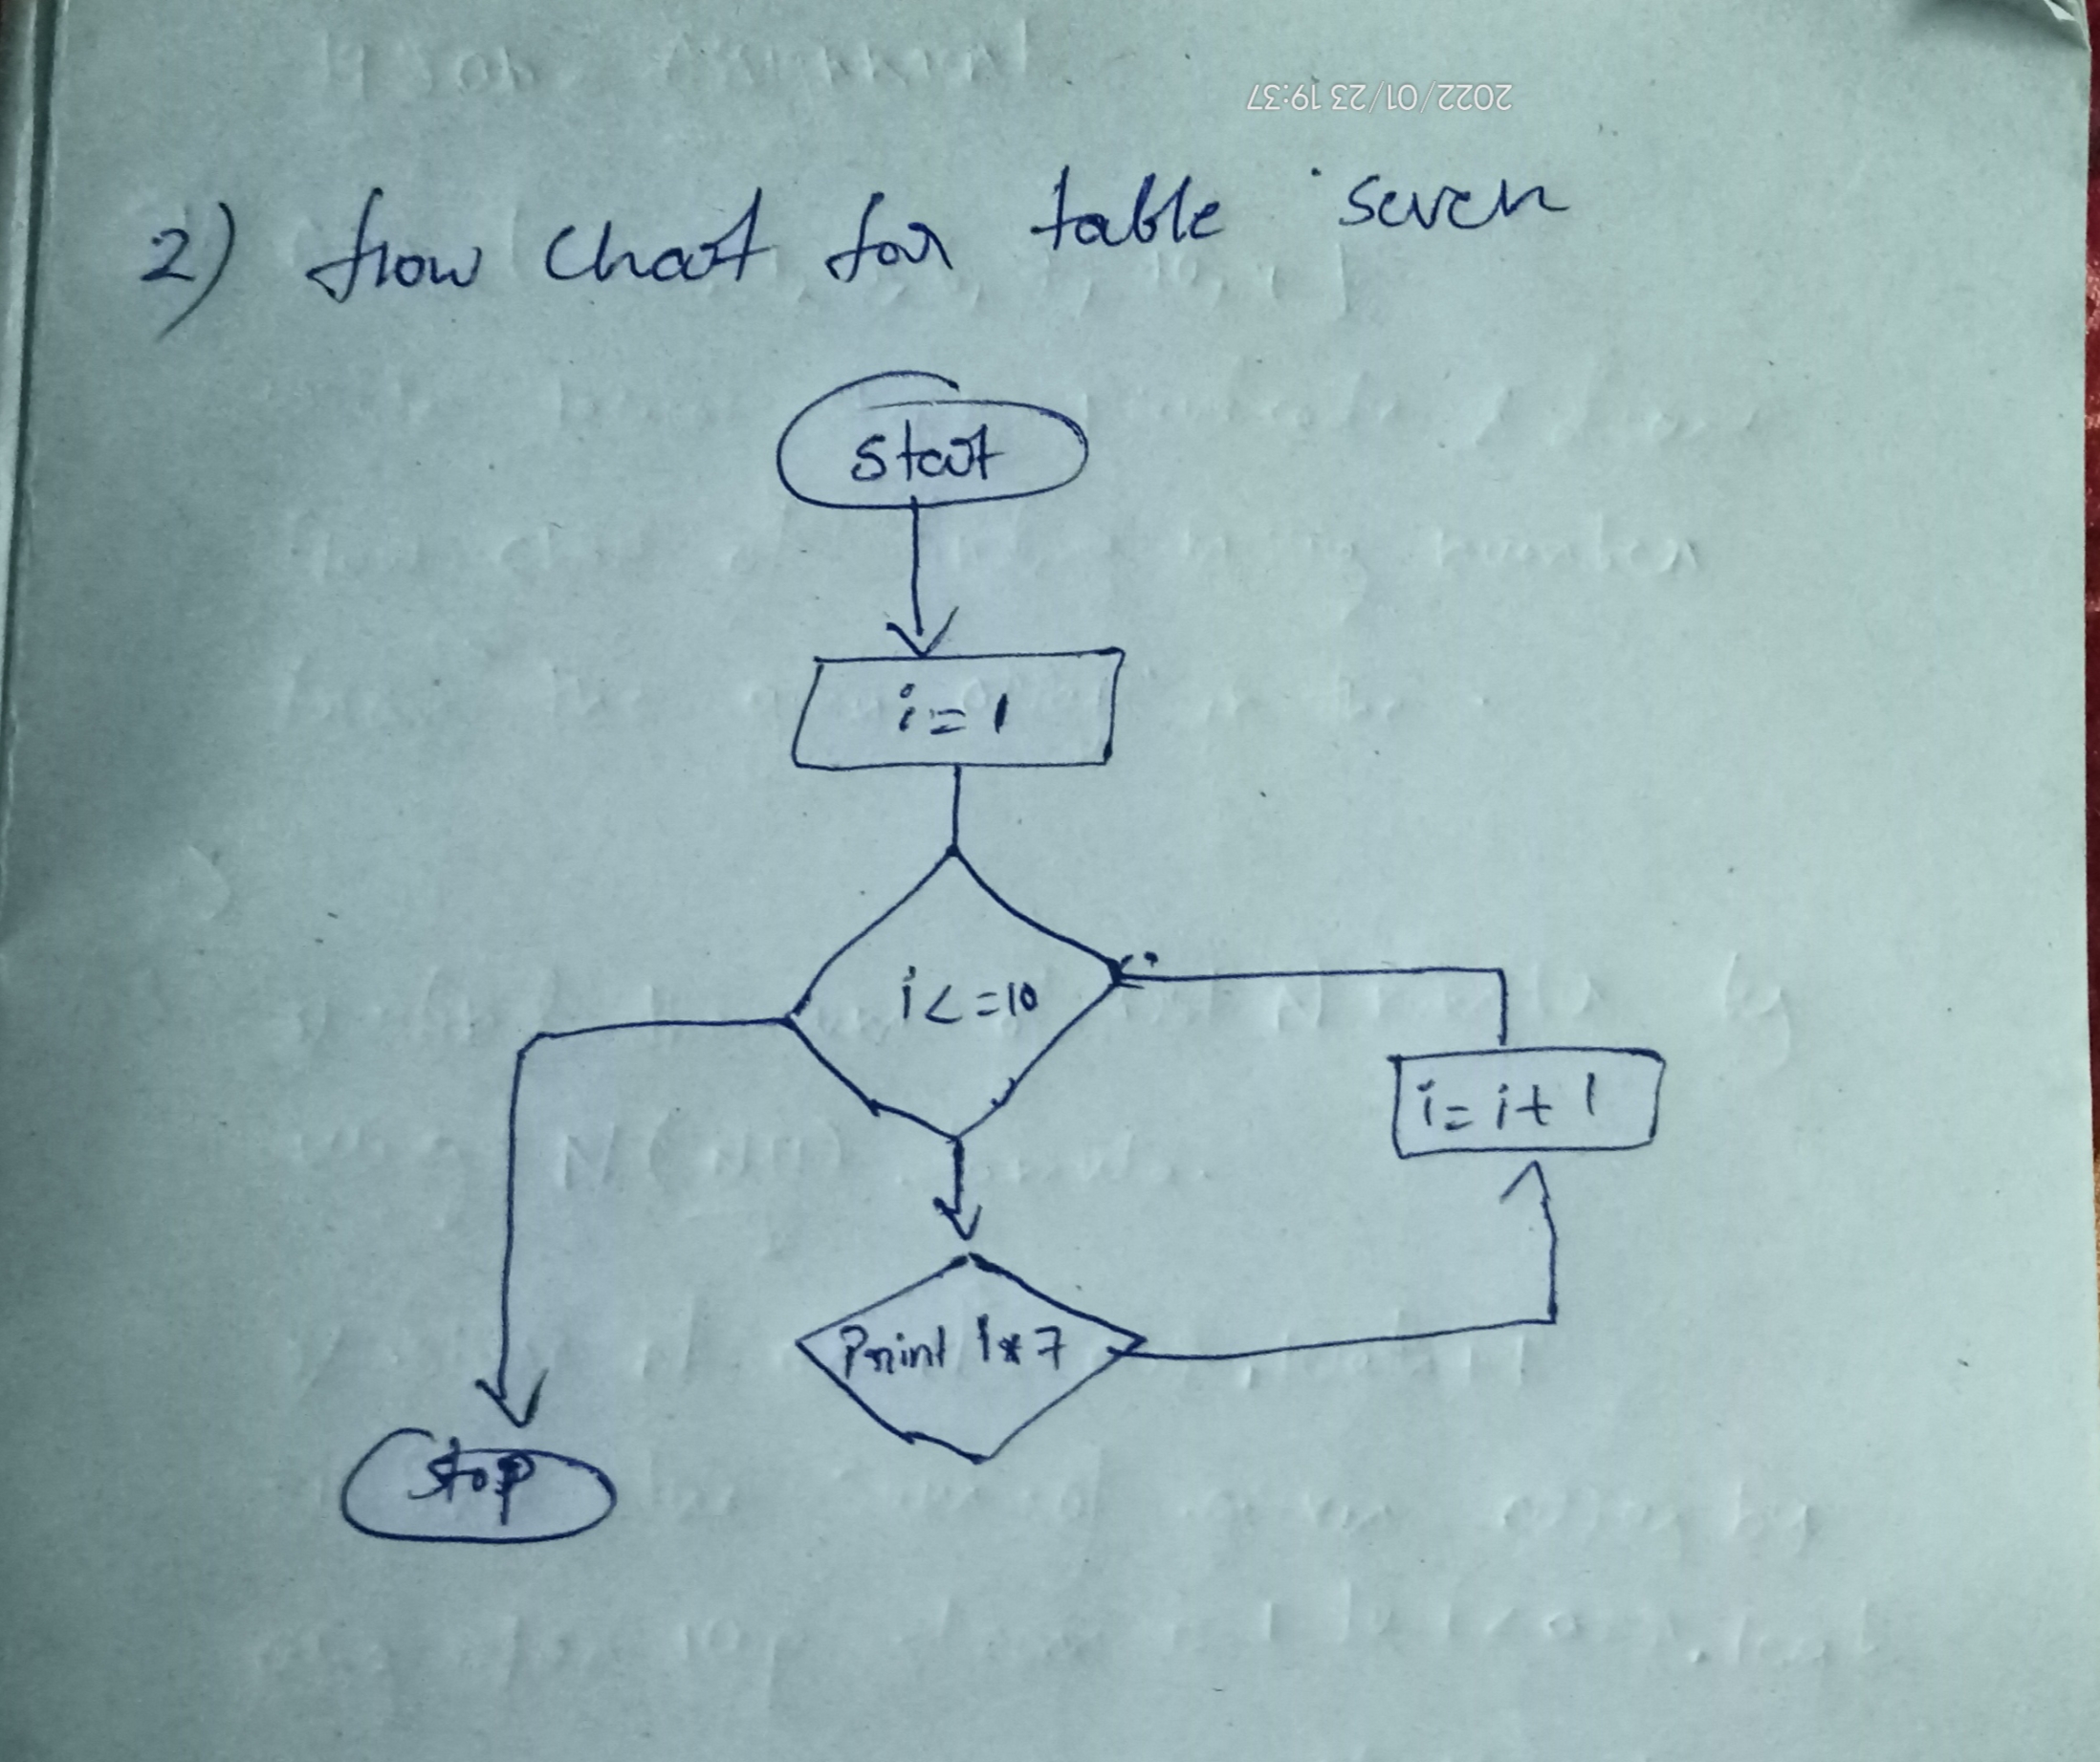 2022/01/23 19:37
2) flow chart for table seven
start
i=1
i<=10
i=i+1
Print 1*7
stop